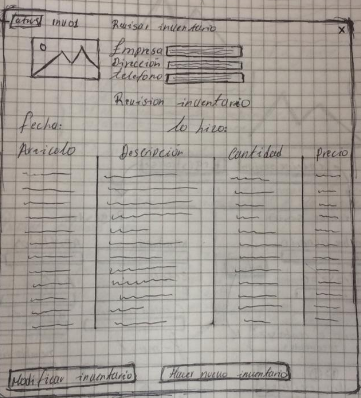 atras invod Revisar inventario X
Empresa
Dirección
telefono
Revision inventario
fecha: lo hizo:
Articulo Descripción Cantidad Precio
Modificar inventario Hacer nuevo inventario